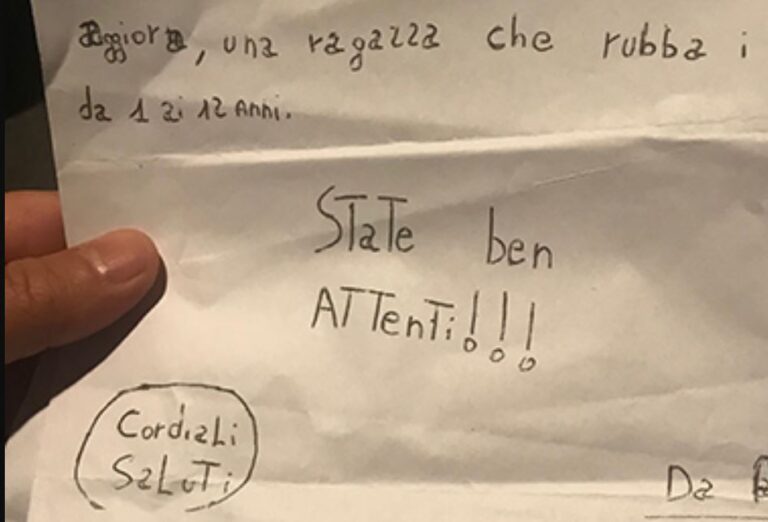 aggiore, una ragazza che rubba i
da 1 ai 12 Anni.
STaTe ben
ATTenTi!!!
CordiaLi
SaLuTi
Da